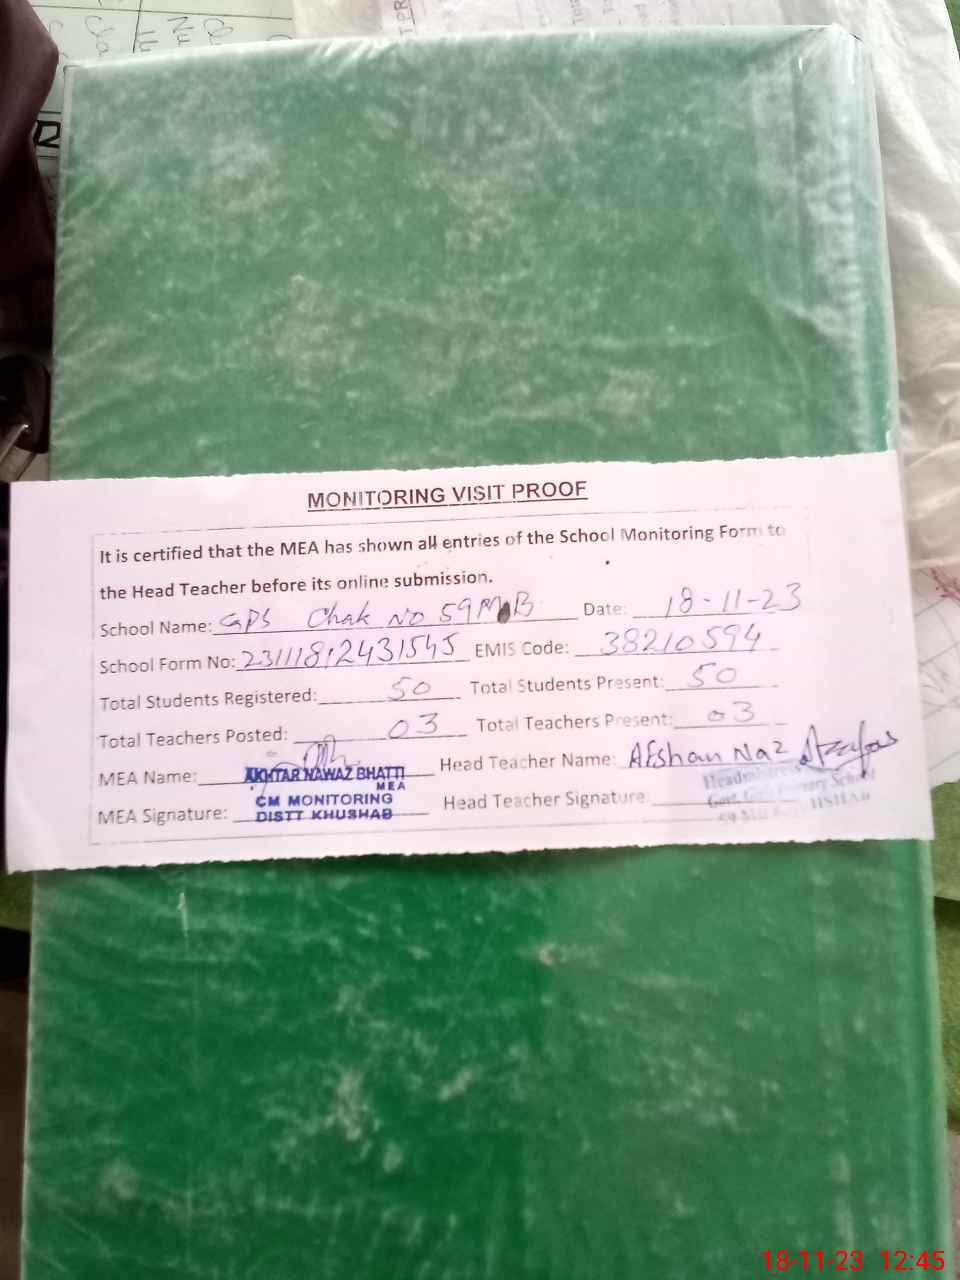 MONITORING VISIT PROOF
It is certified that the MEA has shown all entries of the School Monitoring Form to
the Head Teacher before its online submission.
School Name: GPS Chak No 59 MB Date: 18-11-23
School Form No: 23111812431545 EMIS Code: 38210594
Total Students Registered: 50 Total Students Present: 50
Total Teachers Posted: 03 Total Teachers Present: 03
MEA Name: AKHTAR NAWAZ BHATTI Head Teacher Name: Afshan Naz
MEA
MEA Signature: CM MONITORING Head Teacher Signature:
DISTT KHUSHAB
Headmistress
Govt. Girls Primary School
18-11-23 12:45